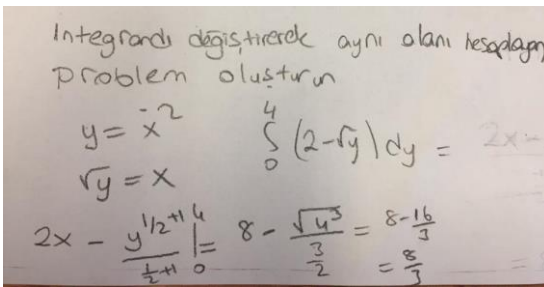 Integrandı değiştirerek aynı alanı hesaplayan
problem oluşturun
y = x^2
∫_0^4 (2-√y) dy =
√y = x
2x - y^{1/2+1}/(1/2+1) |_0^4 = 8 - √4^3/(3/2) = 8-16/3
= 8/3